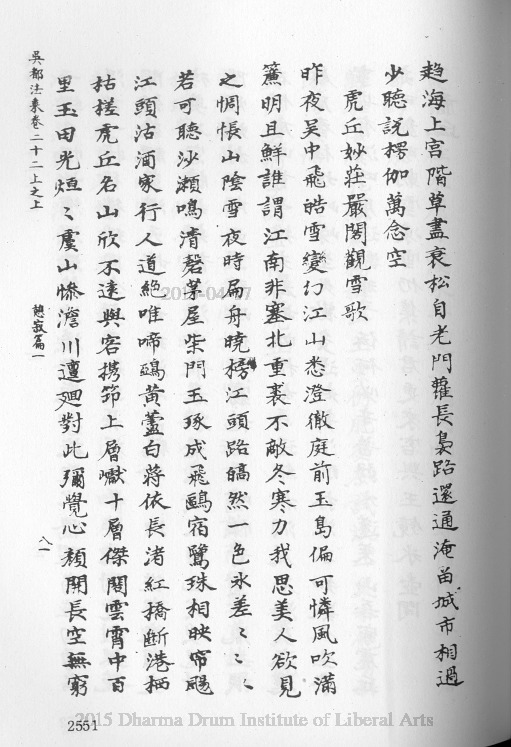 趨海上宮階草盡衰松自老門蘿長裊路還通淹留城市相過
少聽說楞伽萬念空
虎丘妙莊嚴閣觀雪歌
昨夜吳中飛皓雪變幻江山悉澄徹庭前玉島偏可憐風吹滿
簾明且鮮誰謂江南非塞北重裘不敵冬寒力我思美人欲見
之惆悵山陰雪夜時扁舟曉榜江頭路皜然一色永差〻〻
若可聽沙瀨鳴清磬茅屋柴門玉琢成飛鷗宿鷺珠相映帘颺
江頭沽酒家行人道絕唯啼鵶黃蘆白蔣依長渚紅橋斷港栖
枯槎虎丘名山欣不遠與客携筇上層巘十層傑閣雲霄中百
里玉田光烜〻虞山慘澹川邅廻對此彌覺心顏開長空無窮
吳都法乘卷二十二上之上
憩寂篇一
八一
2551
2015-04-07
2015 Dharma Drum Institute of Liberal Arts